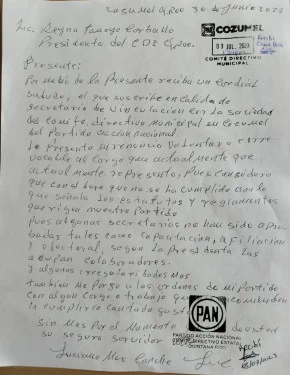 Cozumel Q.roo 30 de Junio 2023
Lic. Reyna Tamayo Carballo
Presidenta del CDE Q.roo.
COZUMEL
03 JUL. 2023
COMITÉ DIRECTIVO
MUNICIPAL
Presente:
Por medio de la Presente reciba un cordial
saludo, el que suscribe en calida de
secretario de vinculacion con la sociedad
del comite, directivo municipal en Cozumel
del Partido accion nacional
le Presento mi renuncia voluntaria e irre
vocable al cargo que actualmente que
actualmente represento, Pues considero
que no se ha cumplido con lo
que señala los estatutos y reglamentos
que rigen nuestro Partido
Pues algunas secretarias no han sido apro
badas tales como capacitacion, afiliacion
y electoral, segun la Presidenta las
ocupan colaboradores.
y algunas irregularidades mas
tambien me Pongo a las ordenes de mi Partido
con algun cargo o trabajo que
la cumplire con todo gusto
Sin mas Por el Momento
su seguro servidor
PAN
PARTIDO ACCIÓN NACIONAL
COMITÉ DIRECTIVO ESTATAL
QUINTANA ROO
Recibi
Luciano